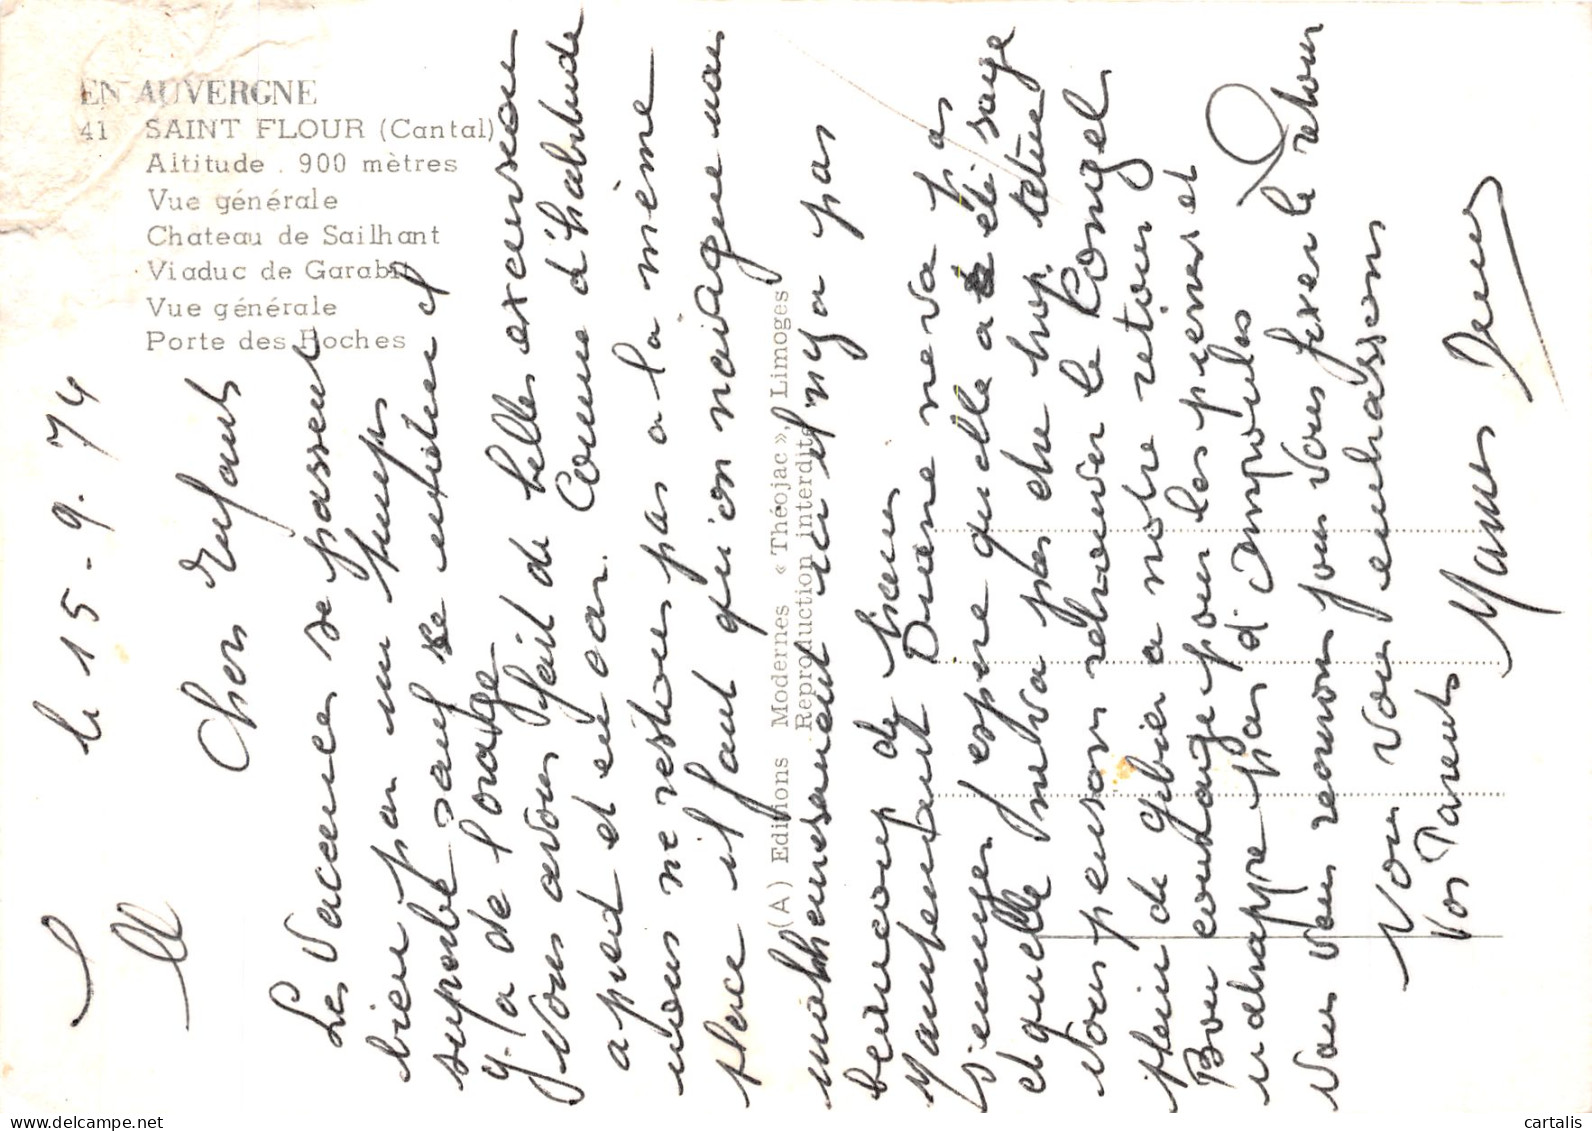 EN AUVERGNE
41 SAINT FLOUR (Cantal)
Altitude . 900 mètres
Vue générale
Chateau de Sailhant
Viaduc de Garabit
Vue générale
Porte des Roches
(A) Editions Modernes « Théojac », Limoges
Reproduction interdite
le 15-9-74
Chers Enfants
Les Vacances se passent
bien par un temps
superbe sauf se
y-a de l'orage
Nous avons fait de belles excursion
a pied et en car. Comme d'habitude
nous ne restons pas a la même
place il faut qu'on navigue mais
malheureusement ici il n'y a pas
beaucoup de
Maintenant Diane ne va pas
s'ennuyer espere quelle a été sage
et quelle n'a pas été trop têtue
Nous pensons retrouver le Congel
plein de gibier a notre retour
Bon courage pour les pierres et
n'attrappe pas d'ampoules
Nous vous reverrons pour vous fixer le retour
Nous vous embrassons
Vos Parents